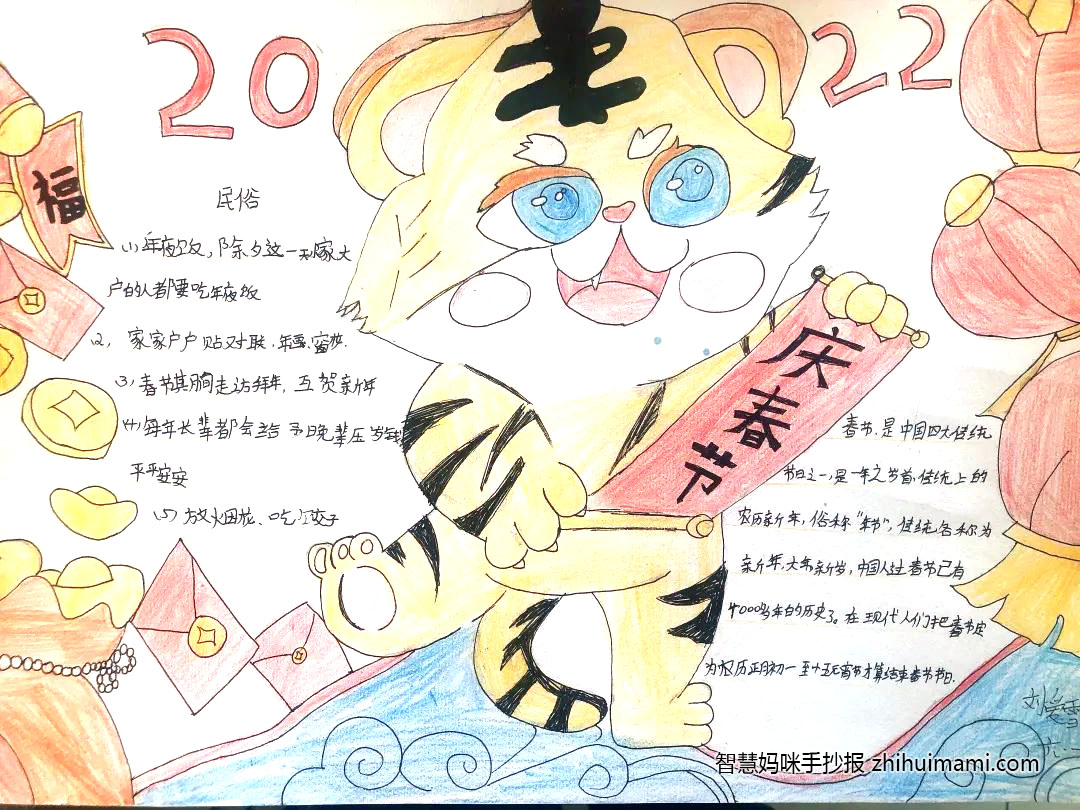 20
22
福
民俗
(1)年夜饭,除夕这一天家大
户的人都要吃年夜饭
(2) 家家户户贴对联,年画,窗花.
(3)春节其间走访拜年,互贺新年
(4)每年长辈都会给予晚辈压岁钱
平平安安
(5)放火因花、吃饺子
庆春节
春节,是中国四大传统
节日之一,是一年之岁首,传统上的
农历新年,俗称“年节”,传统名称为
新年,大年,新岁,中国人过春节已有
4000多年的历史了。在现代人们把春节定
为农历正月初一至十五元宵节才算结束春节节日.
智慧妈咪手抄报 zhihuimami.com